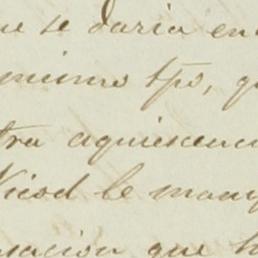 ue se daria en
mismo tpo, q
tra aquiescenc
Nicod le man
sacion que h